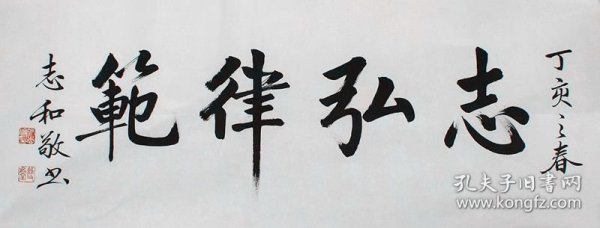 丁亥之春
志弘律範
志和敬书
孔夫子旧书网
www.kongfz.com